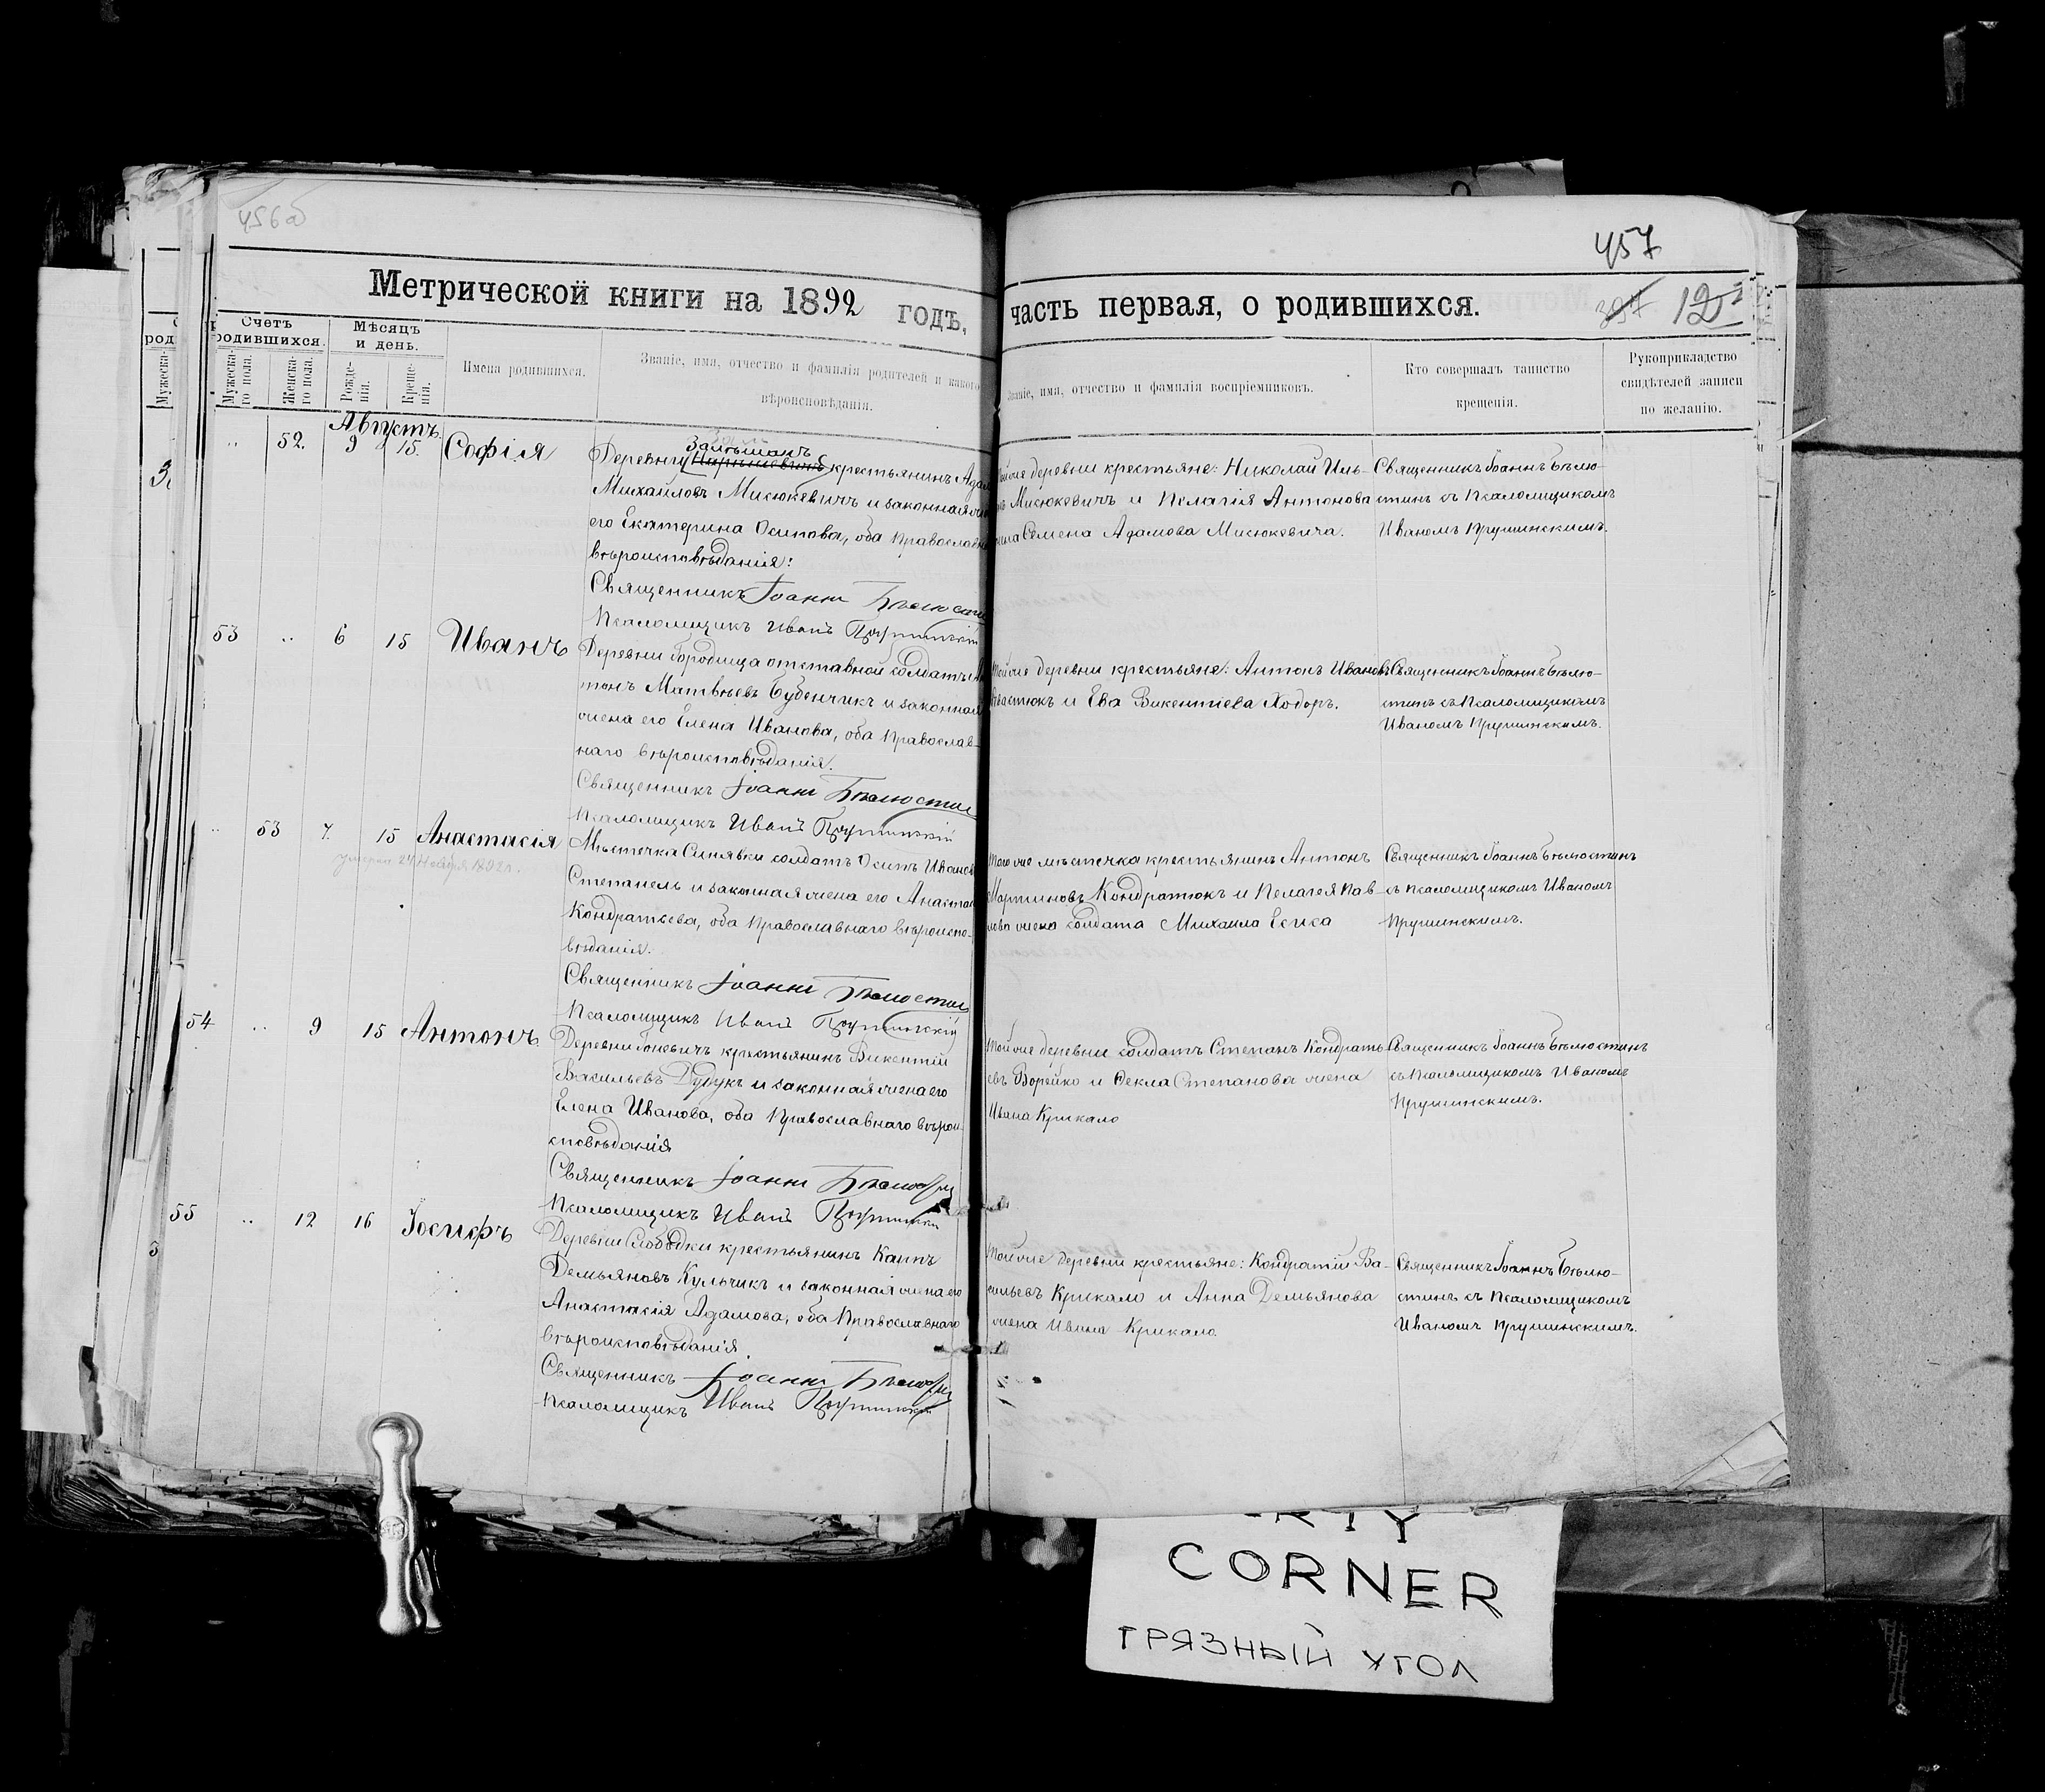 456об
457
397 12
Метрической книги на 1892 годъ,
часть первая, о родившихся.
Счетъ родившихся.
Мужеска-го пола.
Женска-го пола.
Мѣсяцъ и день.
Рожде-нія.
Креще-нія.
Имена родившихся.
Званіе, имя, отчество и фамилія родителей и какого
вѣроисповѣданія.
Званіе, имя, отчество и фамилія воспріемниковъ.
Кто совершалъ таинство
крещенія.
Рукоприкладство
свидѣтелей записи
по желанію.
Августъ.
" 52. 9 15. Софія
Деревни крестьянинъ Адам
Михайловъ Мисюкевичъ и законная же
его Екатерина Осипова, оба Православна
вѣроисповѣданія:
Священникъ Іоаннъ Бѣлюстин
Псаломщикъ Иванъ Прушинскій
Тойже деревни крестьяне: Николай Иль-
въ Мисюкевичъ и Пелагія Антонова
жена Семена Адамова Мисюкевича.
Священникъ Іоаннъ Бѣлю-
стинъ съ Псаломщикомъ
Иваномъ Прушинскимъ.
53 " 6 15 Иванъ
Деревни Городища отставной солдатъ Ан
тонъ Матвѣевъ Бубенчикъ и законная
жена его Елена Иванова, оба Православ-
наго вѣроисповѣданія.
Священникъ Іоаннъ Бѣлюстин
Псаломщикъ Иванъ Прушинскій
Тойже деревни крестьяне: Антонъ Ивановъ
и Ева Викентіева Ходоръ.
Священникъ Іоаннъ Бѣлю-
стинъ съ Псаломщикомъ
Иваномъ Прушинскимъ.
" 53 7. 15 Анастасія
умерла 24 Ноября 1892 г.
Мѣстечка Синявки солдатъ Осипъ Иванов
Степанель и законная жена его Анастас
Кондратьева, оба Православнаго вѣроиспо-
вѣданія.
Священникъ Іоаннъ Бѣлюстин
Псаломщикъ Иванъ Прушинскій
Того же мѣстечка крестьянинъ Антонъ
Мартиновъ Кондратюкъ и Пелагея Пав-
лова жена солдата Михаила Есиса
Священникъ Іоаннъ Бѣлюстинъ
съ псаломщикомъ Иваномъ
Прушинскимъ.
54 " 9 15 Антонъ
Деревни Гоневичъ крестьянинъ Викентій
Васильевъ Дудукъ и законная жена его
Елена Иванова, оба Православнаго вѣрои-
сповѣданія
Священникъ Іоаннъ Бѣлюстин
Псаломщикъ Иванъ Прушинскій
Тойже деревни солдатъ Степанъ Кондрать
евъ Ворейко и Фекла Степанова жена
Ивана Крикало
Священникъ Іоаннъ Бѣлюстинъ
съ Псаломщикомъ Иваномъ
Прушинскимъ.
55 " 12 16 Іосифъ
Деревни Слободки крестьянинъ Карпъ
Демьяновъ Кульчикъ и законная жена его
Анастасія Адамова, оба Православнаго
вѣроисповѣданія
Священникъ Іоаннъ Бѣлюстин
Псаломщикъ Иванъ Прушинскій
Тойже деревни крестьяне: Кондратій Ва-
сильевъ Крикало и Анна Демьянова
жена Ивана Крикало
Священникъ Іоаннъ Бѣлю-
стинъ съ Псаломщикомъ
Иваномъ Прушинскимъ.
CORNER
ГРЯЗНЫЙ УГОЛ